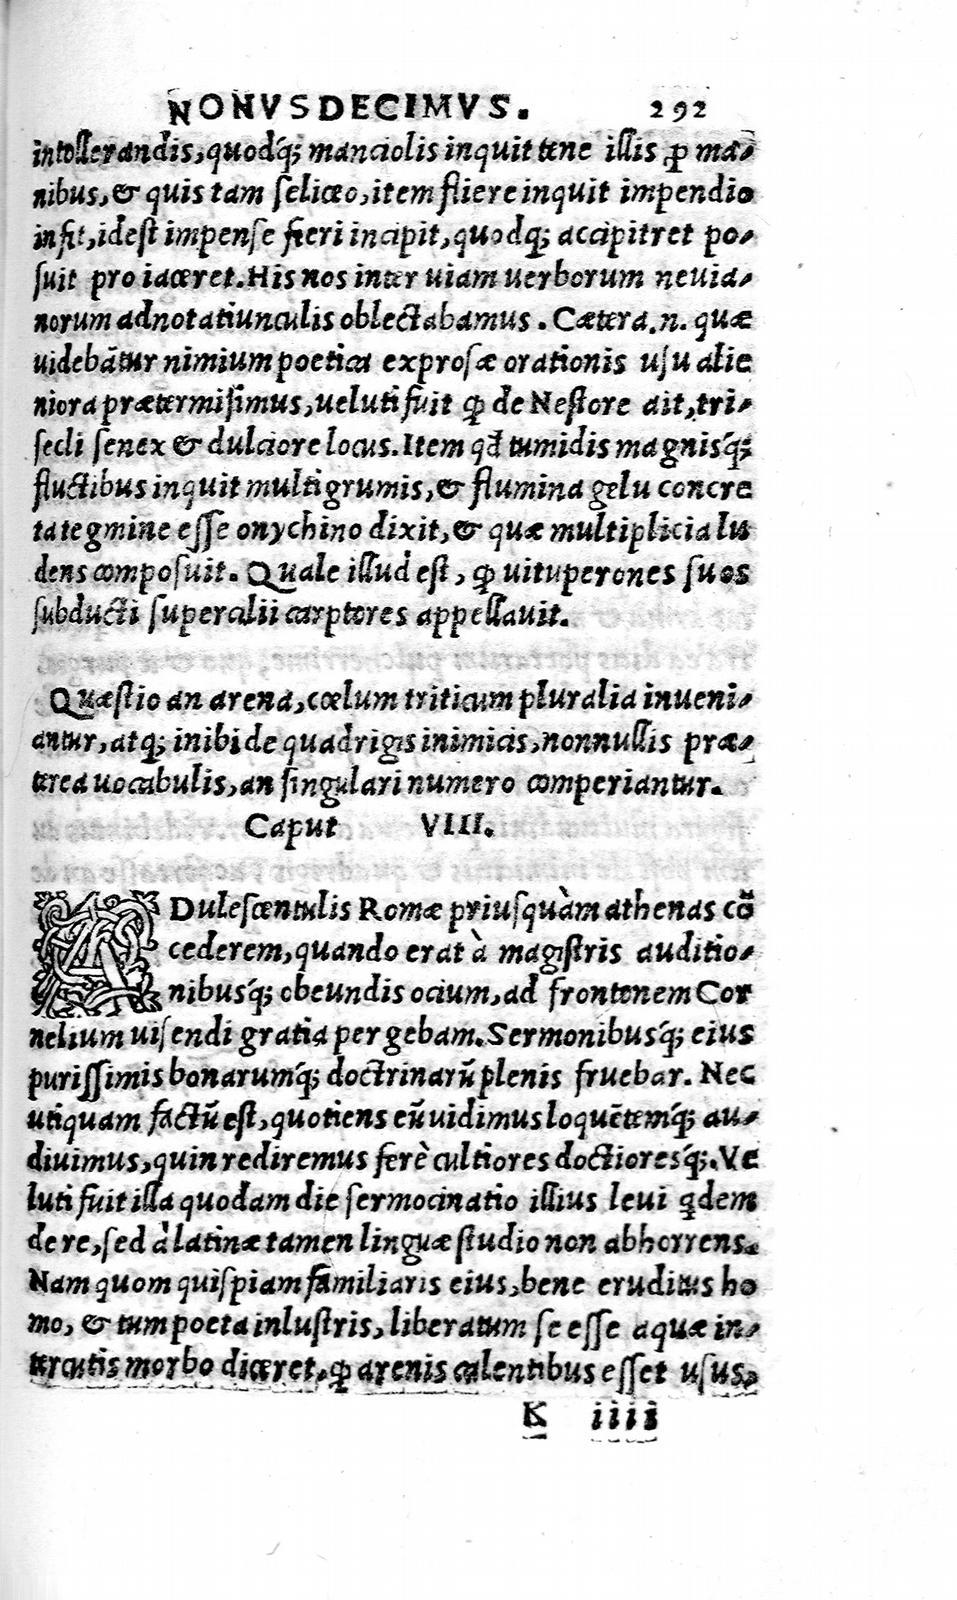 NONVSDECIMVS. 292
intollerandis, quodq́; manciolis inquit tene illis ꝓ ma-
nibus, & quis tam seliceo, item fliere inquit impendio
infit, idest impense fieri incipit, quodq; accipitret po-
suit pro iaceret. His nos inter uiam uerborum neuia-
norum adnotatiunculis oblectabamus. Cætera.n. quæ
uidebãtur nimium poetica ex prosæ orationis usu alie
niora prætermisimus, ueluti fuit ꝙ de Nestore ait, tri-
secli senex & dulciore locus. Item qđ tumidis magnisq́;
fluctibus inquit multigrumis, & flumina gelu concre
ta tegmine esse onychino dixit, & quæ multiplicia lu
dens composuit. Quale illud est, ꝙ uituperones suos
subducti supercilii carptores appellauit.
Quæstio an arena, cœlum triticum pluralia inueni-
antur, atq; inibi de quadrigis inimicis, nonnullis præ-
terea uocabulis, an singulari numero comperiantur.
Caput VIII.
ADulescentulis Romæ priusquàm athenas cõ
cederem, quando erat à magistris auditio-
nibusq́; obeundis ocium, ad frontenem Cor
nelium uisendi gratia pergebam. Sermonibusq́; eius
purissimis bonarumq́; doctrinarũ plenis fruebar. Nec
utiquam factũ est, quotiens eũ uidimus loquẽtemq́; au-
diuimus, quin rediremus ferè cultiores doctioresq́;. Ve
luti fuit illa quodam die sermocinatio illius leui qdem
de re, sed à latinæ tamen linguæ studio non abhorrens.
Nam quom quispiam familiaris eius, bene eruditus ho
mo, & tum poeta inlustris, liberatum se esse aquæ in-
tercutis morbo diceret, ꝙ arenis calentibus esset usus,
K iiii